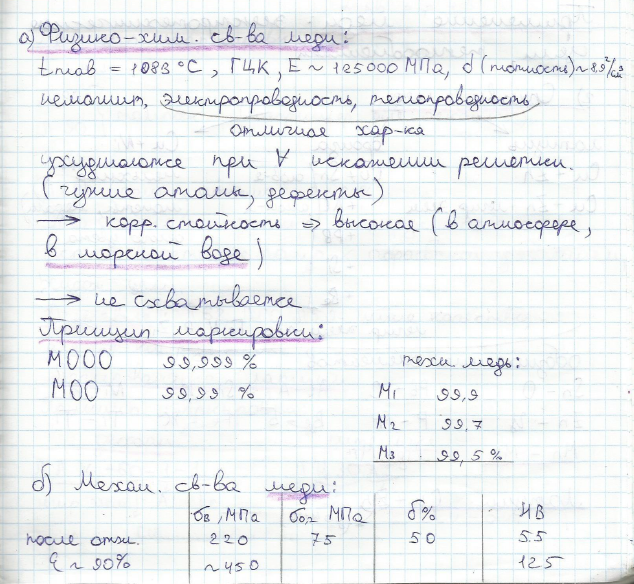 а) Физико-хим. св-ва меди:
tплав = 1083 °C, ГЦК, E ~ 125000 МПа, δ (плотность) ~ 8,9 г/см³
немагнит, электропроводность, теплопроводность
- отличная хар-ка
ухудшаются при ∀ искажении решетки.
(чужие атомы, дефекты)
→ корр. стойкость ⇒ высокая (в атмосфере,
в морской воде)
→ не схватывается
Принцип маркировки:
М000 99,999 % техн медь:
М00 99,99 %
М1 99,9
М2 99,7
М3 99,5 %
б) Механ. св-ва меди:
σв, МПа σ0,2 МПа δ% HB
после отж. 220 75 50 55
ε ~ 90% ~450 125